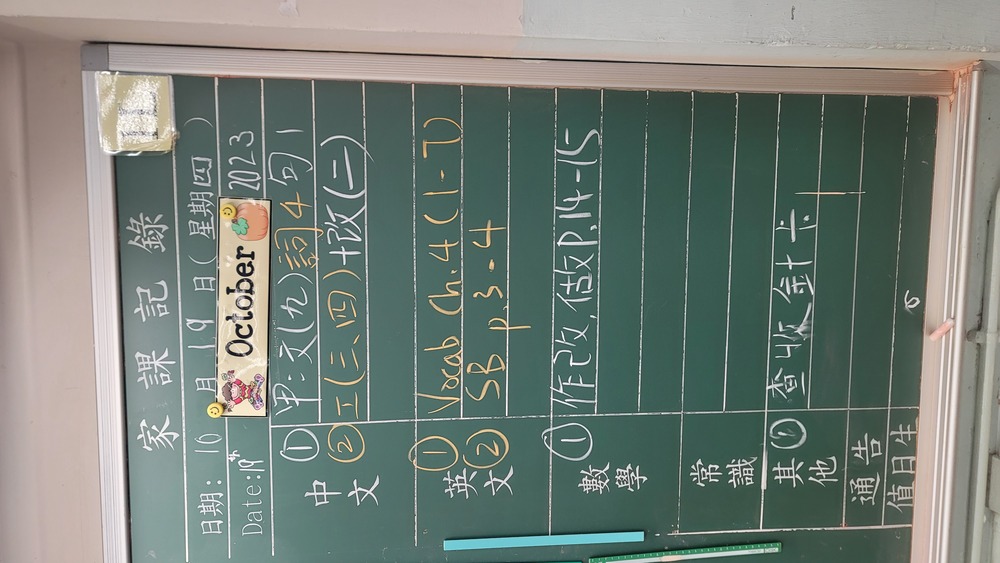 家課記錄
日期: 10月19日(星期四)
Date: 19th October 2023
中文 ① 甲:文(九)詞4句1
② 工(三、四)+改(二)
英文 ① Vocab Ch.4 (1-7)
② SB p.3-4
數學 ① 作己改,估故P.14-15
常識
其他 ① 查收針卡
通告
值日生